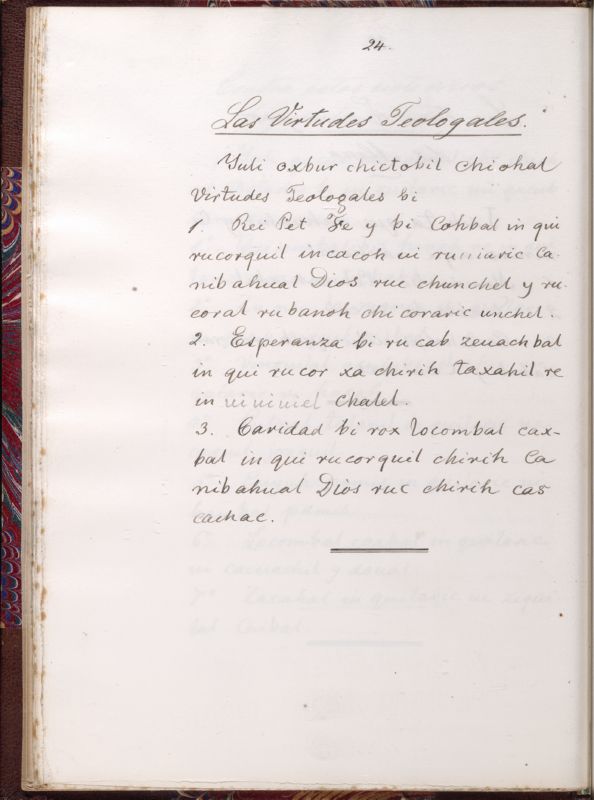 24.
Las Virtudes Teologales.
Yuli oxbur chictobil chiohal
Virtudes Teologales bi
1. Rei Pet Fe y bi Cohbal in qui
rucorquil incacoh ui ca-
nibahual Dios ruc chunchel y ru-
coral rubanoh chicoraric unchel.
2. Esperanza bi rucab zeuachbal
in qui rucor xa chirih taxahil re
in chalel.
3. Caridad bi rox locombal cax-
bal in qui rucorquil chirih Ca
nibahual Dios ruc chirih cas
cachac.